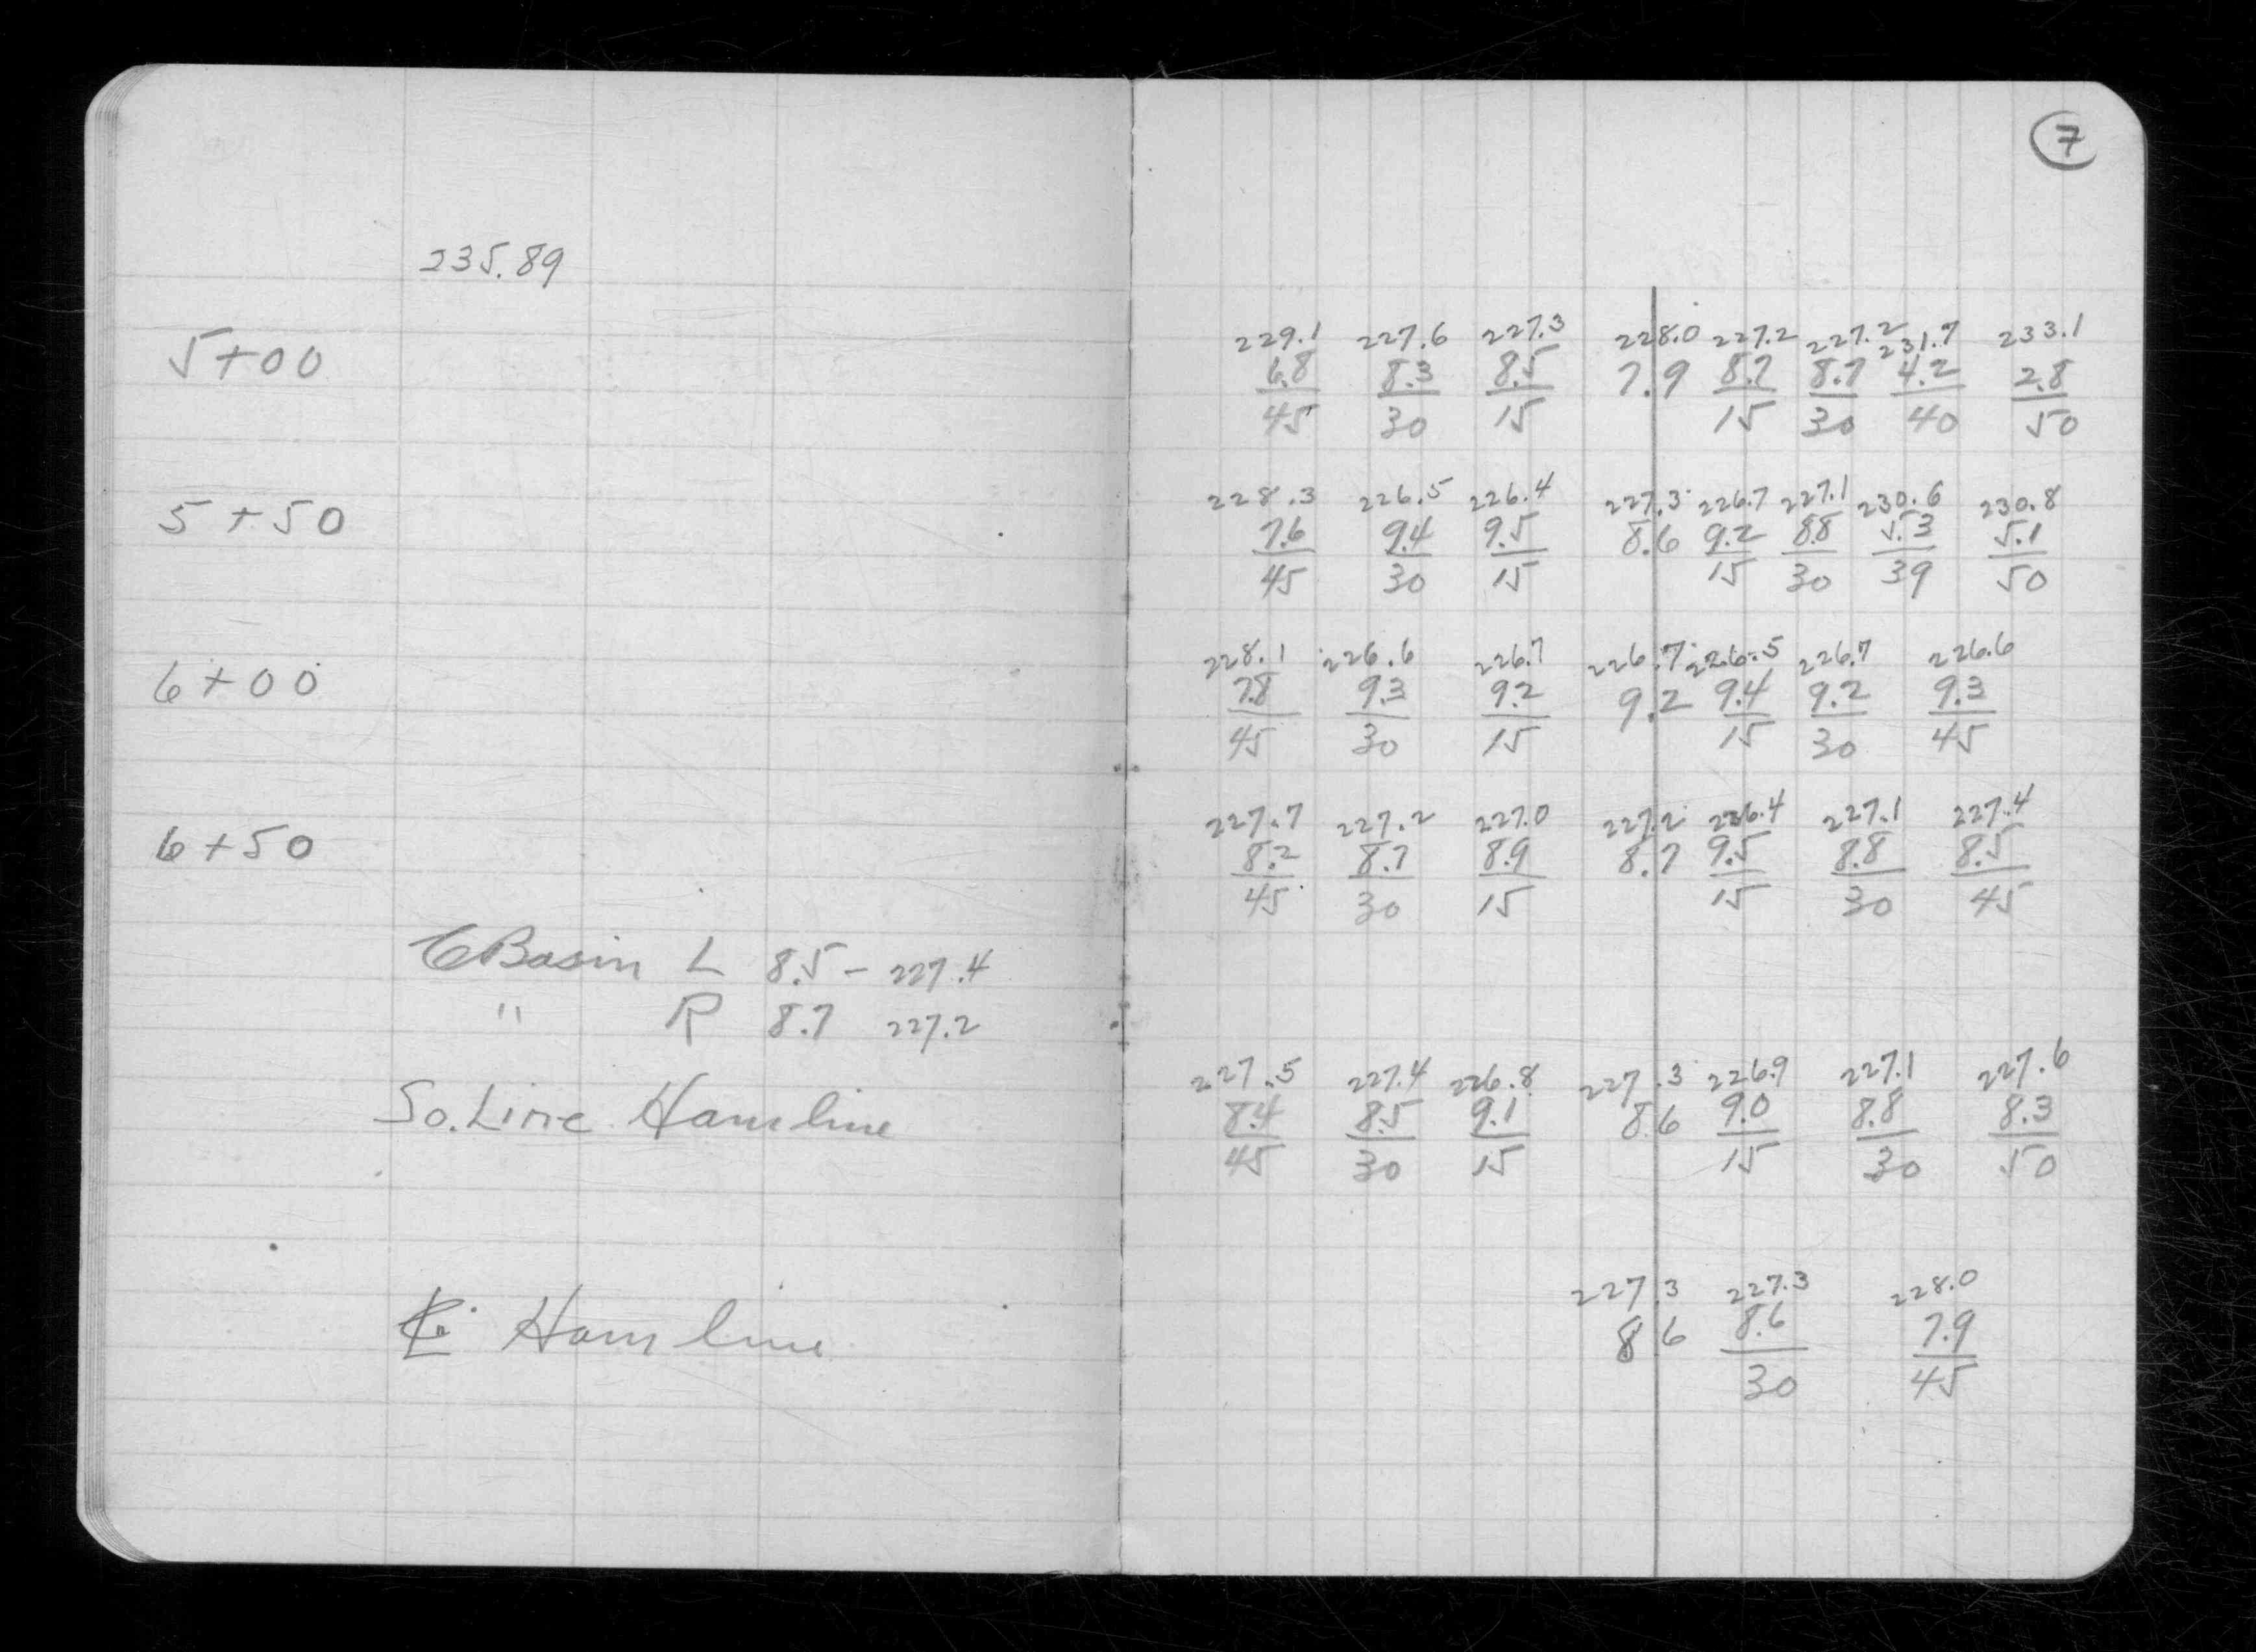 7
235.89
229.1 227.6 227.3 228.0 227.2 227.2 231.7 233.1
5+00 6.8 8.3 8.5 7.9 8.7 8.7 4.2 2.8
45 30 15 15 30 40 50
228.3 226.5 226.4 227.3 226.7 227.1 230.6 230.8
5+50 7.6 9.4 9.5 8.6 9.2 8.8 5.3 5.1
45 30 15 15 30 39 50
228.1 226.6 226.7 226.7 226.5 226.7 226.6
6+00 7.8 9.3 9.2 9.2 9.4 9.2 9.3
45 30 15 15 30 45
227.7 227.2 227.0 227.2 226.4 227.1 227.4
6+50 8.2 8.7 8.9 8.7 9.5 8.8 8.5
45 30 15 15 30 45
CBasin L 8.5 - 227.4
" R 8.7 227.2
227.5 227.4 226.8 227.3 226.9 227.1 227.6
So. Line Hamline 8.4 8.5 9.1 8.6 9.0 8.8 8.3
45 30 15 15 30 50
227.3 227.3 228.0
℄ Hamline 8.6 8.6 7.9
30 45